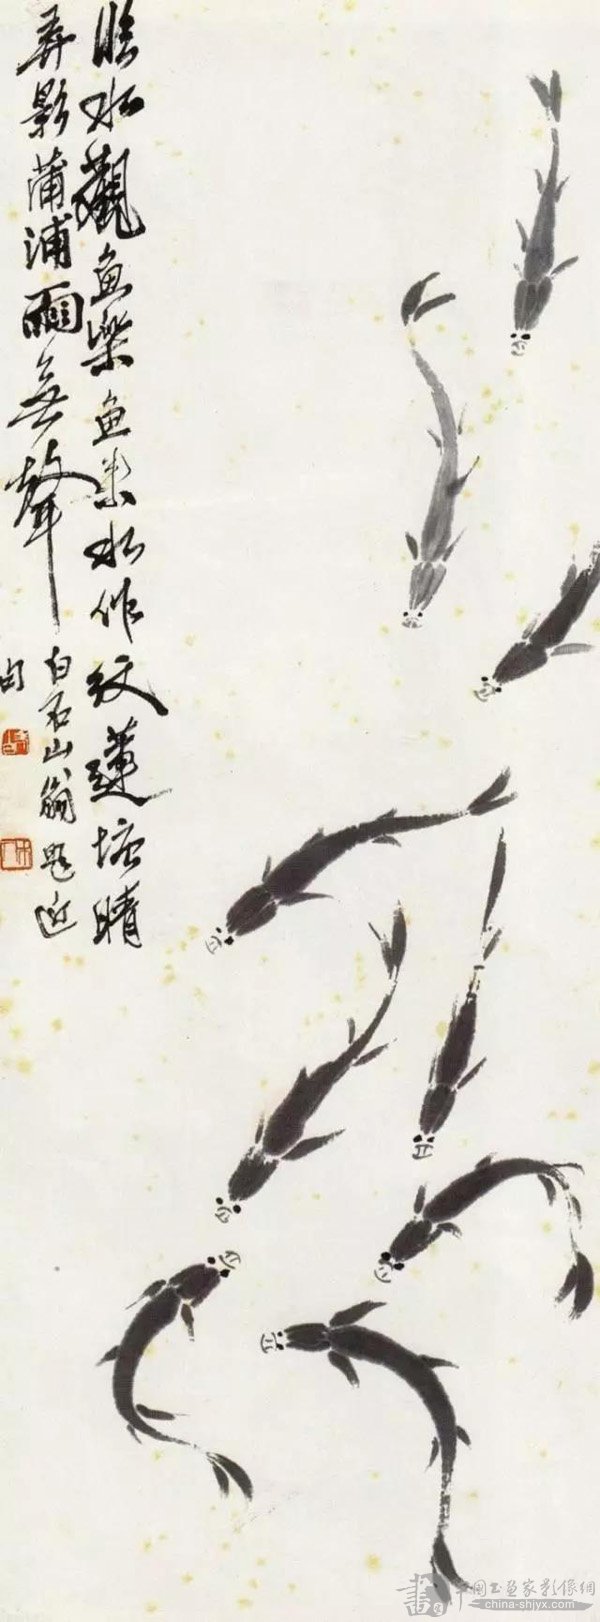 臨水觀鱼樂鱼來水作紋蓮塘晴
弄影蒲浦雨無聲
白石山翁題近
句
書 中国书画家影像網
china-shjyx.com